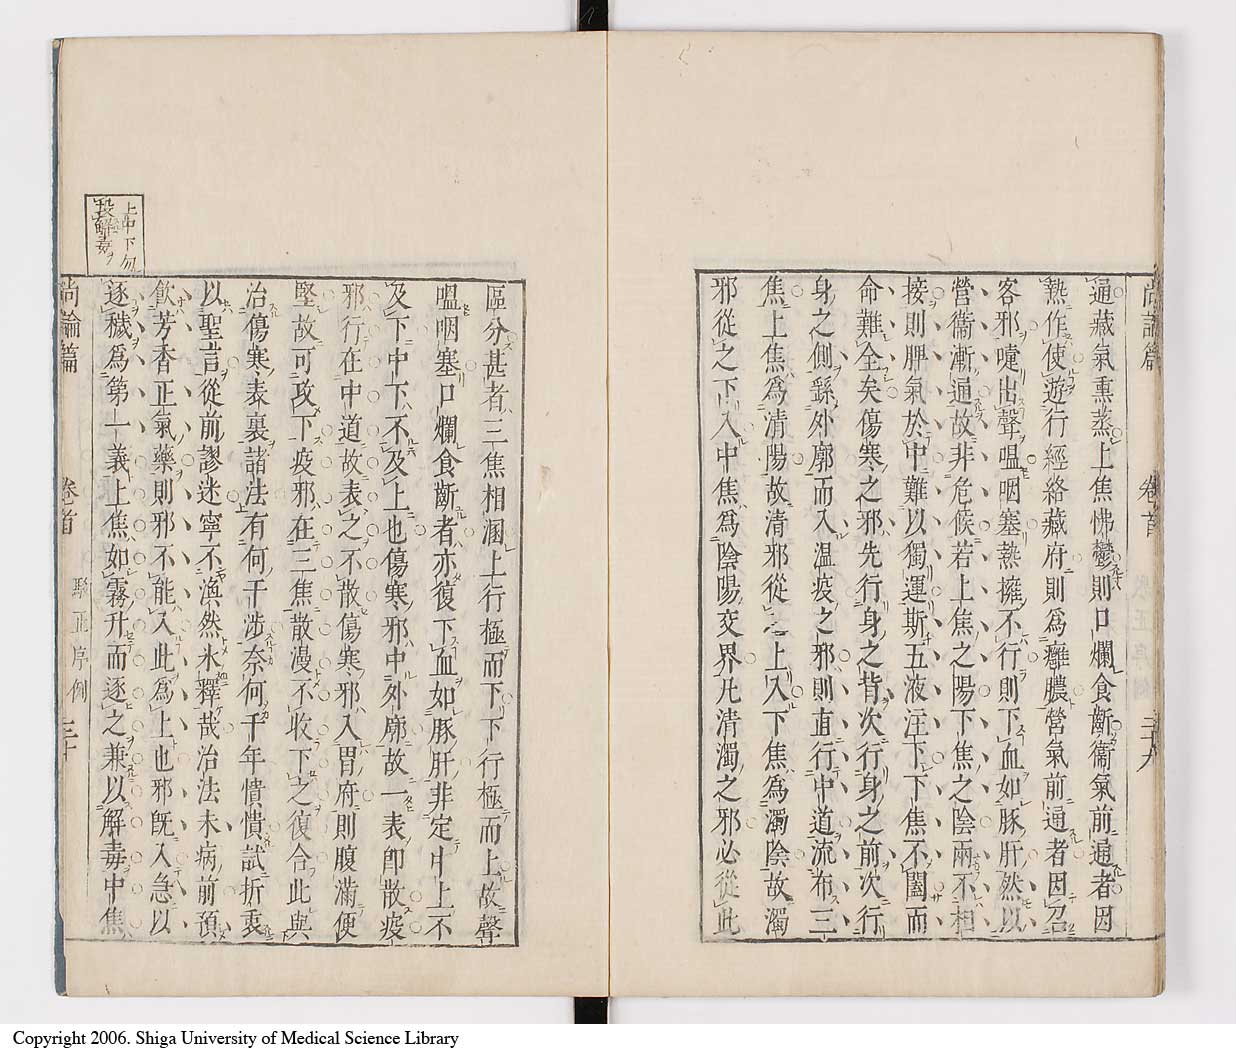 尚論篇 卷首 二十九
通藏氣熏蒸上焦怫鬱則口爛食齗衞氣前通者因
熱作使遊行經絡藏府則爲癰膿營氣前通者因召
客邪嚏出聲嗢咽塞熱擁不行則下血如豚肝然以
營衞漸通故非危候若上焦之陽下焦之陰兩不相
接則脾氣於中難以獨運斯五液注下下焦不闔而
命難全矣傷寒之邪先行身之背次行身之前次行
身之側繇外廓而入溫疫之邪則直行中道流布三
焦上焦爲清陽故清邪從之上入下焦爲濁陰故濁
邪從之下入中焦爲陰陽交界凡清濁之邪必從此
區分甚者三焦相溷上行極而下下行極而上故聲
嗢咽塞口爛食齗者亦復下血如豚肝非定中上不
及下中下不及上也傷寒邪中外廓故一表卽散疫
邪行在中道故表之不散傷寒邪入胃府則腹滿便
堅故可攻下疫邪在三焦散漫不收下之復合此與
治傷寒表裏諸法有何干涉奈何千年憒憒試折衷
以聖言從前謬迷寧不渙然氷釋哉治法未病前預
飮芳香正氣藥則邪不能入此爲上也邪旣入急以
逐穢爲第一義上焦如霧升而逐之兼以解毒中焦
尚論篇 卷首 駁正序例 三十
上中下勿
解毒